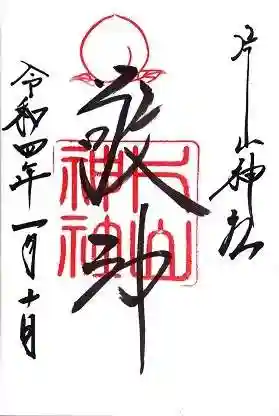 片山神社
敬神
片山神社
令和四年一月十日